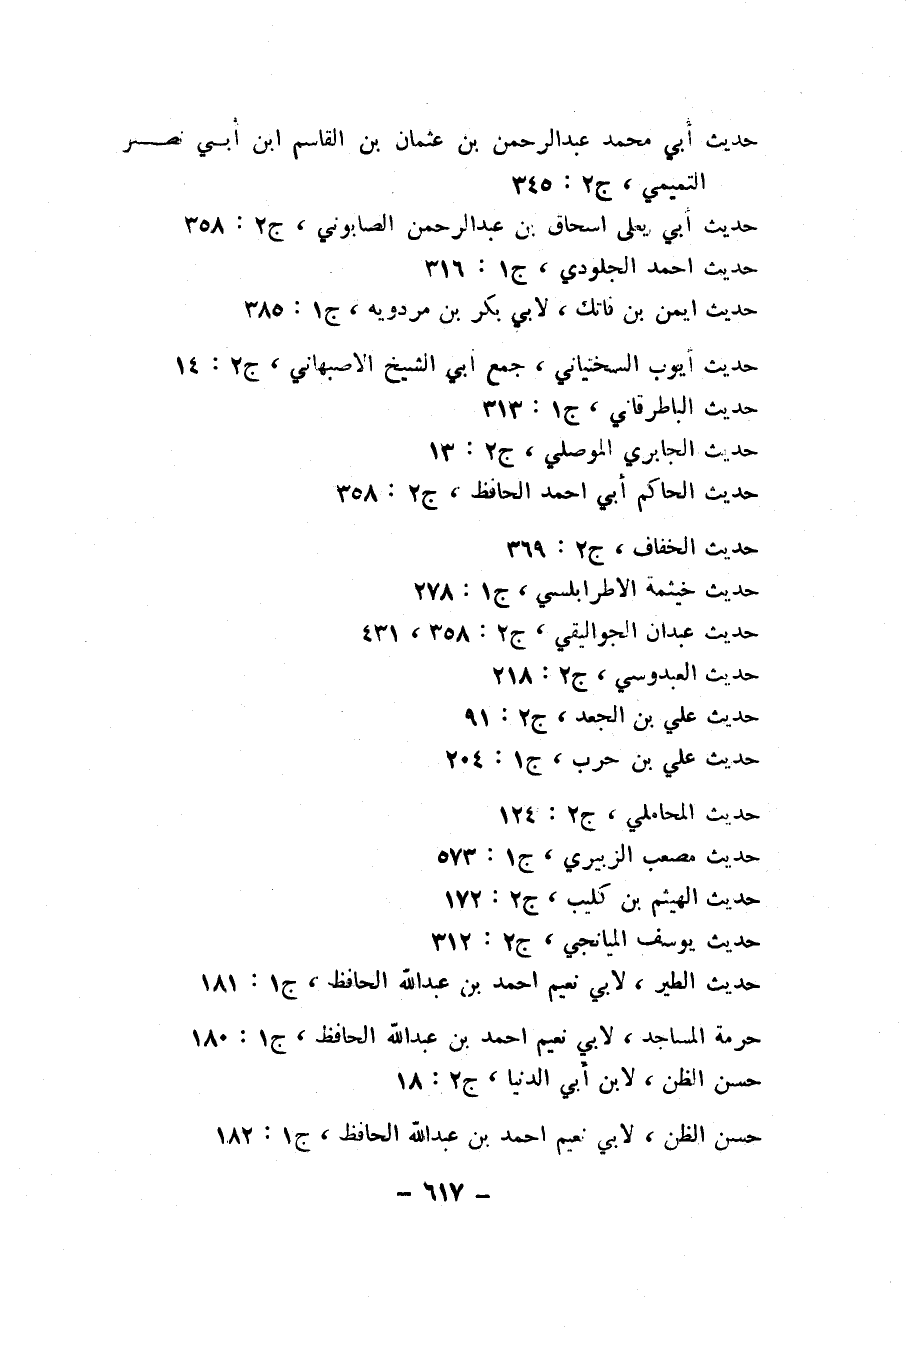 حديث أبي محمد عبدالرحمن بن عثمان بن القاسم ابن أبــي نصـــر
التميمي ، ج٢ : ٣٤٥
حديث أبي يعلى اسحاق بن عبدالرحمن الصابوني ، ج٢ : ٣٥٨
حديث احمد الجلودي ، ج١ : ٣١٦
حديث ايمن بن فاتك ، لابي بكر بن مردويه ، ج١ : ٣٨٥
حديث أيوب السختياني ، جمع أبي الشيخ الاصبهاني ، ج٢ : ١٤
حديث الباطرقاني ، ج١ : ٣١٣
حديث الجابري الموصلي ، ج٢ : ١٣
حديث الحاكم أبي احمد الحافظ ، ج٢ : ٣٥٨
حديث الخفاف ، ج٢ : ٣٦٩
حديث خيثمة الاطرابلسي ، ج١ : ٢٧٨
حديث عبدان الجواليقي ، ج٢ : ٣٥٨ ، ٤٣١
حديث العبدوسي ، ج٢ : ٢١٨
حديث علي بن الجعد ، ج٢ : ٩١
حديث علي بن حرب ، ج١ : ٢٠٤
حديث المحاملي ، ج٢ : ١٢٤
حديث مصعب الزبيري ، ج١ : ٥٧٣
حديث الهيثم بن كليب ، ج٢ : ١٧٢
حديث يوسف الميانجي ، ج٢ : ٣١٢
حديث الطير ، لابي نعيم احمد بن عبدالله الحافظ ، ج١ : ١٨١
حرمة المساجد ، لابي نعيم احمد بن عبدالله الحافظ ، ج١ : ١٨٠
حسن الظن ، لابن أبي الدنيا ، ج٢ : ١٨
حسن الظن ، لابي نعيم احمد بن عبدالله الحافظ ، ج١ : ١٨٢
– ٦١٧ –